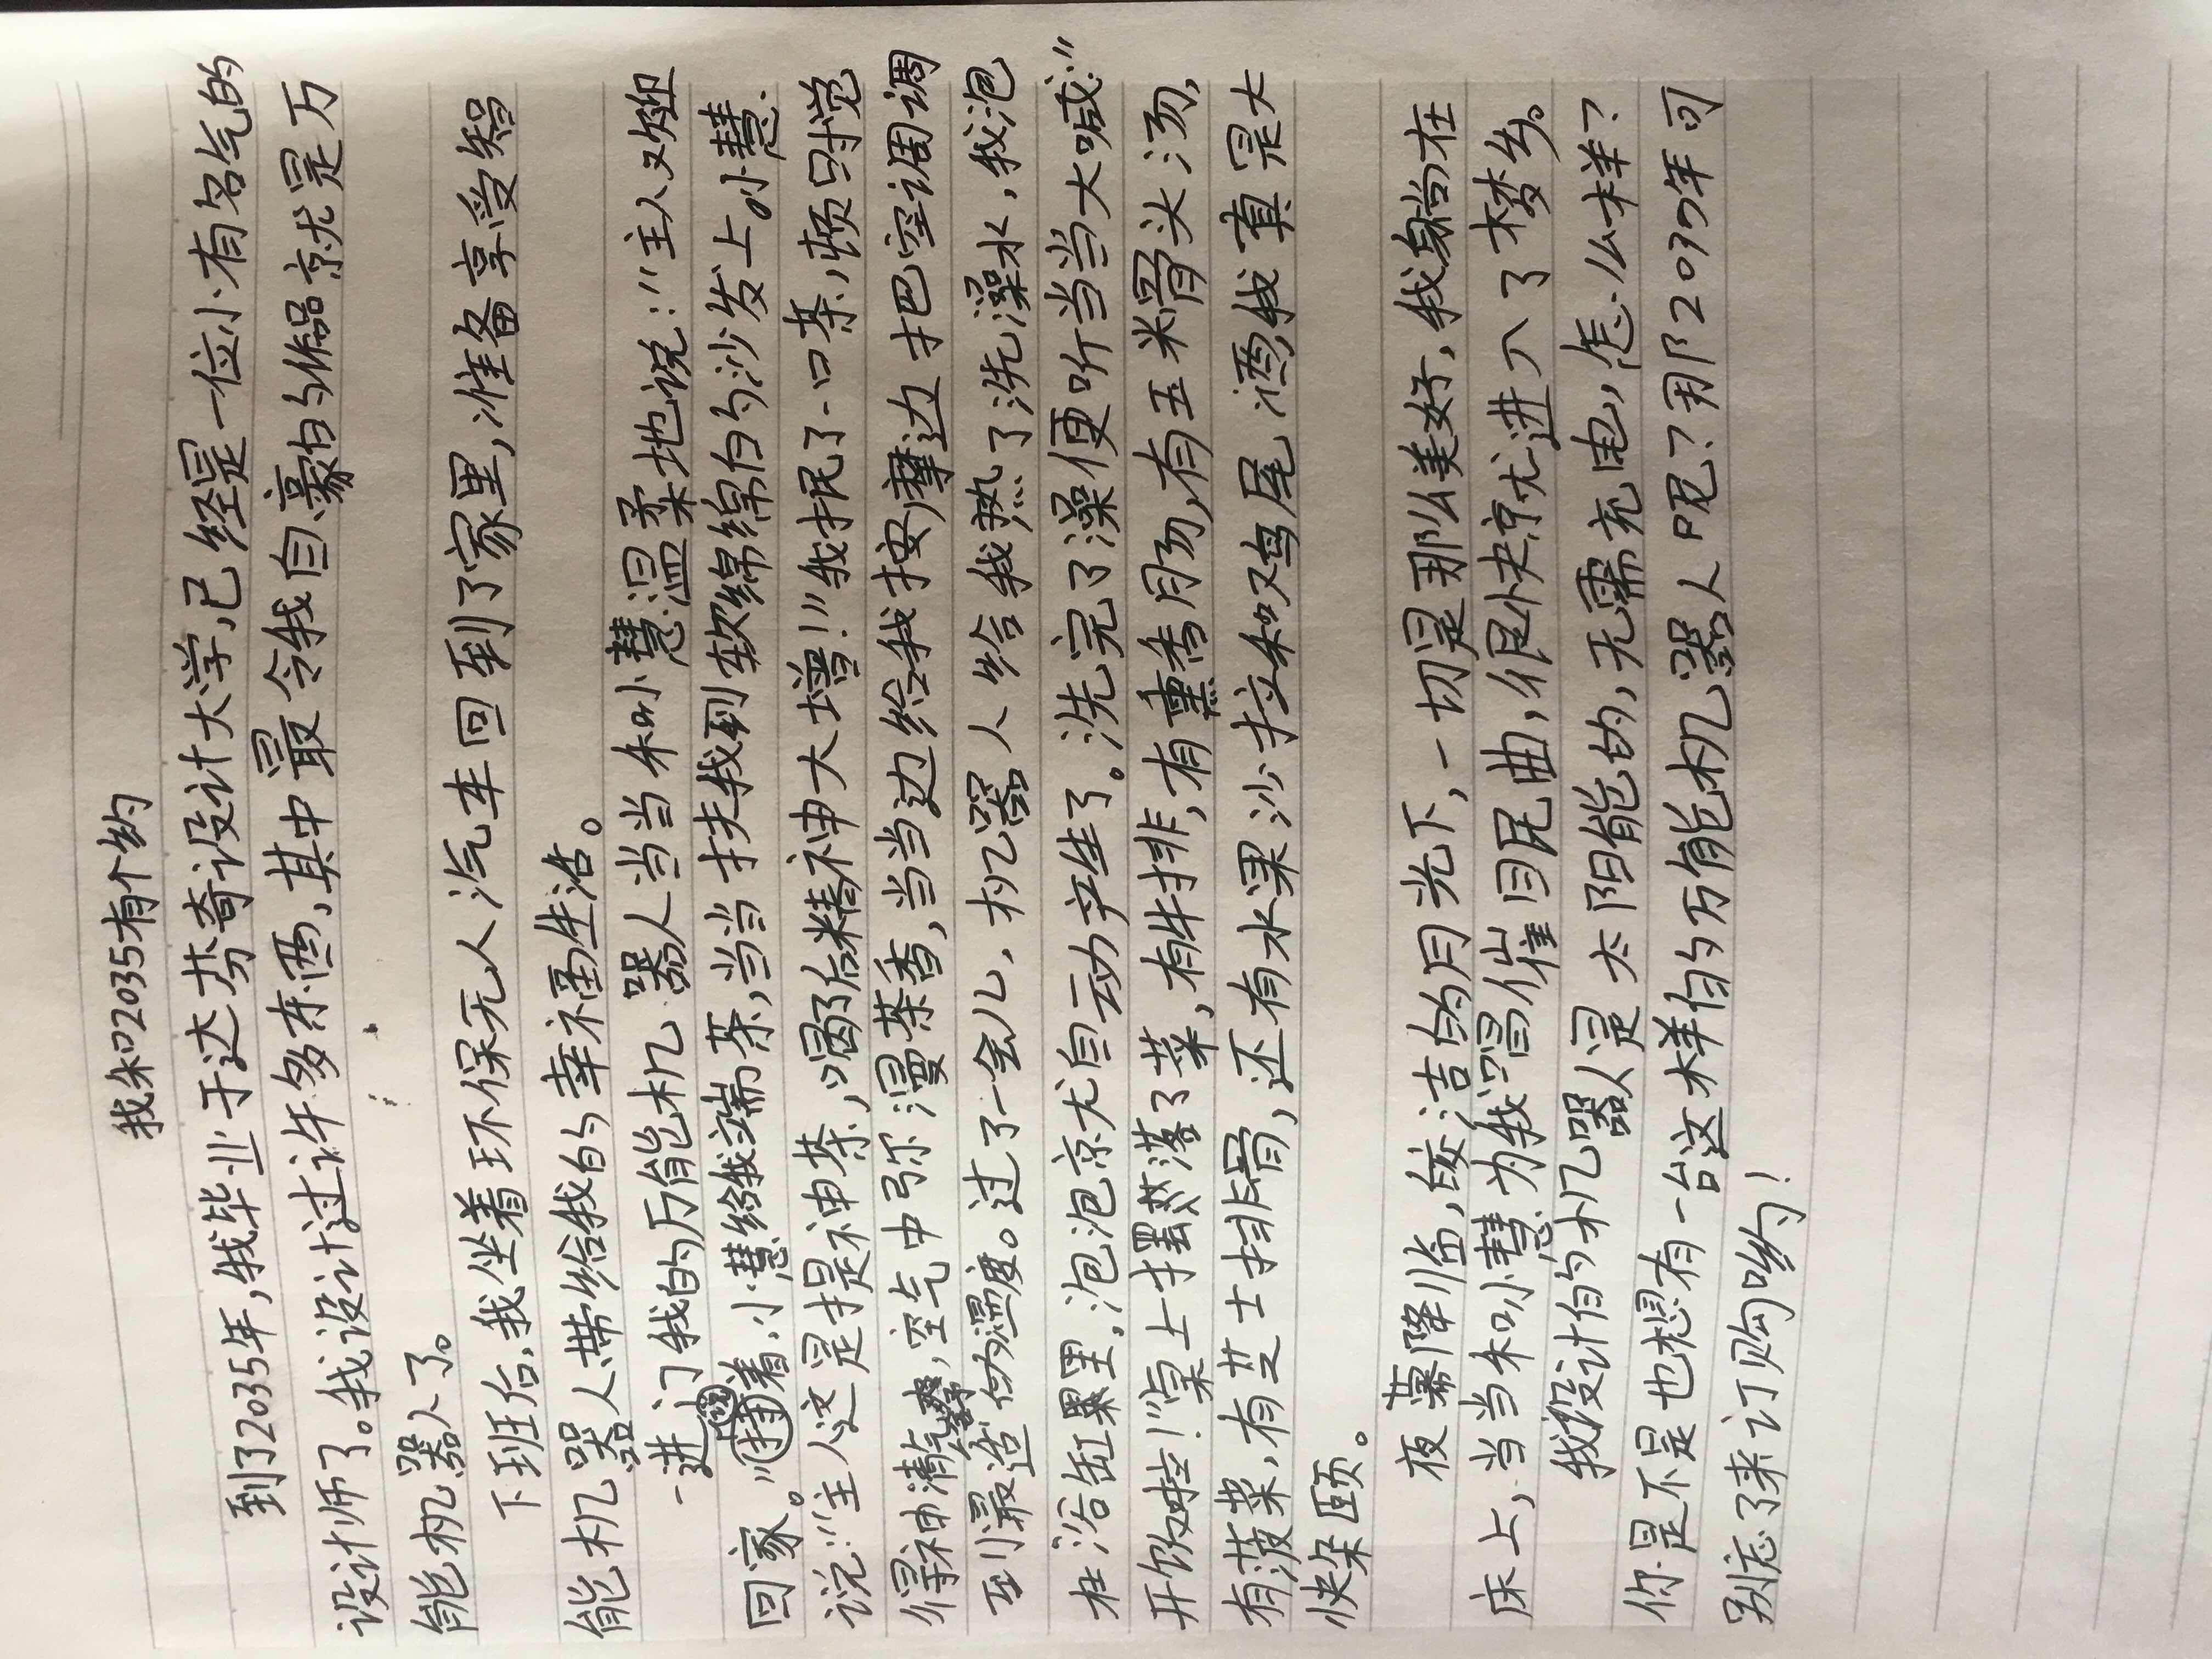 我和2035有个约
到了2035年,我毕业于达芬奇设计大学,已经是一位小有名气的
设计师了。我设计过许多东西,其中最令我自豪的作品就是万
能机器人了。
下班后,我坐着环保无人汽车回到了家里,准备享受智
能机器人带给我的幸福生活。
一进门我的万能机器人当当和小慧温柔地说:“主人欢迎
回家。”接着,小慧给我端茶,当当扶我到软绵绵的沙发上。小慧
说:“主人这是提神茶,喝后精神大增!”我抿了一口茶,顿时觉
得神清气爽,空气中弥漫茶香,当当边给我按摩边把空调调
到最适的温度。过了一会儿,机器人给我热了洗澡水,我泡
在浴缸里,泡泡就自动产生了。洗完了澡便听当当大喊:“
开饭啦!”桌上摆满了菜,有牛排,有熏香肠,有玉米骨头汤,
有菠菜,有芝士排骨,还有水果沙拉和鸡尾酒,我真是大
快朵颐。
夜幕降临,皎洁的月光下,一切是那么美好,我躺在
床上,当当和小慧为我唱催眠曲,很快就进入了梦乡。
我设计的机器人是太阳能的,无需充电,怎么样?
你是不是也想有一台这样的万能机器人吧?那2035年可
别忘了来订购哟!